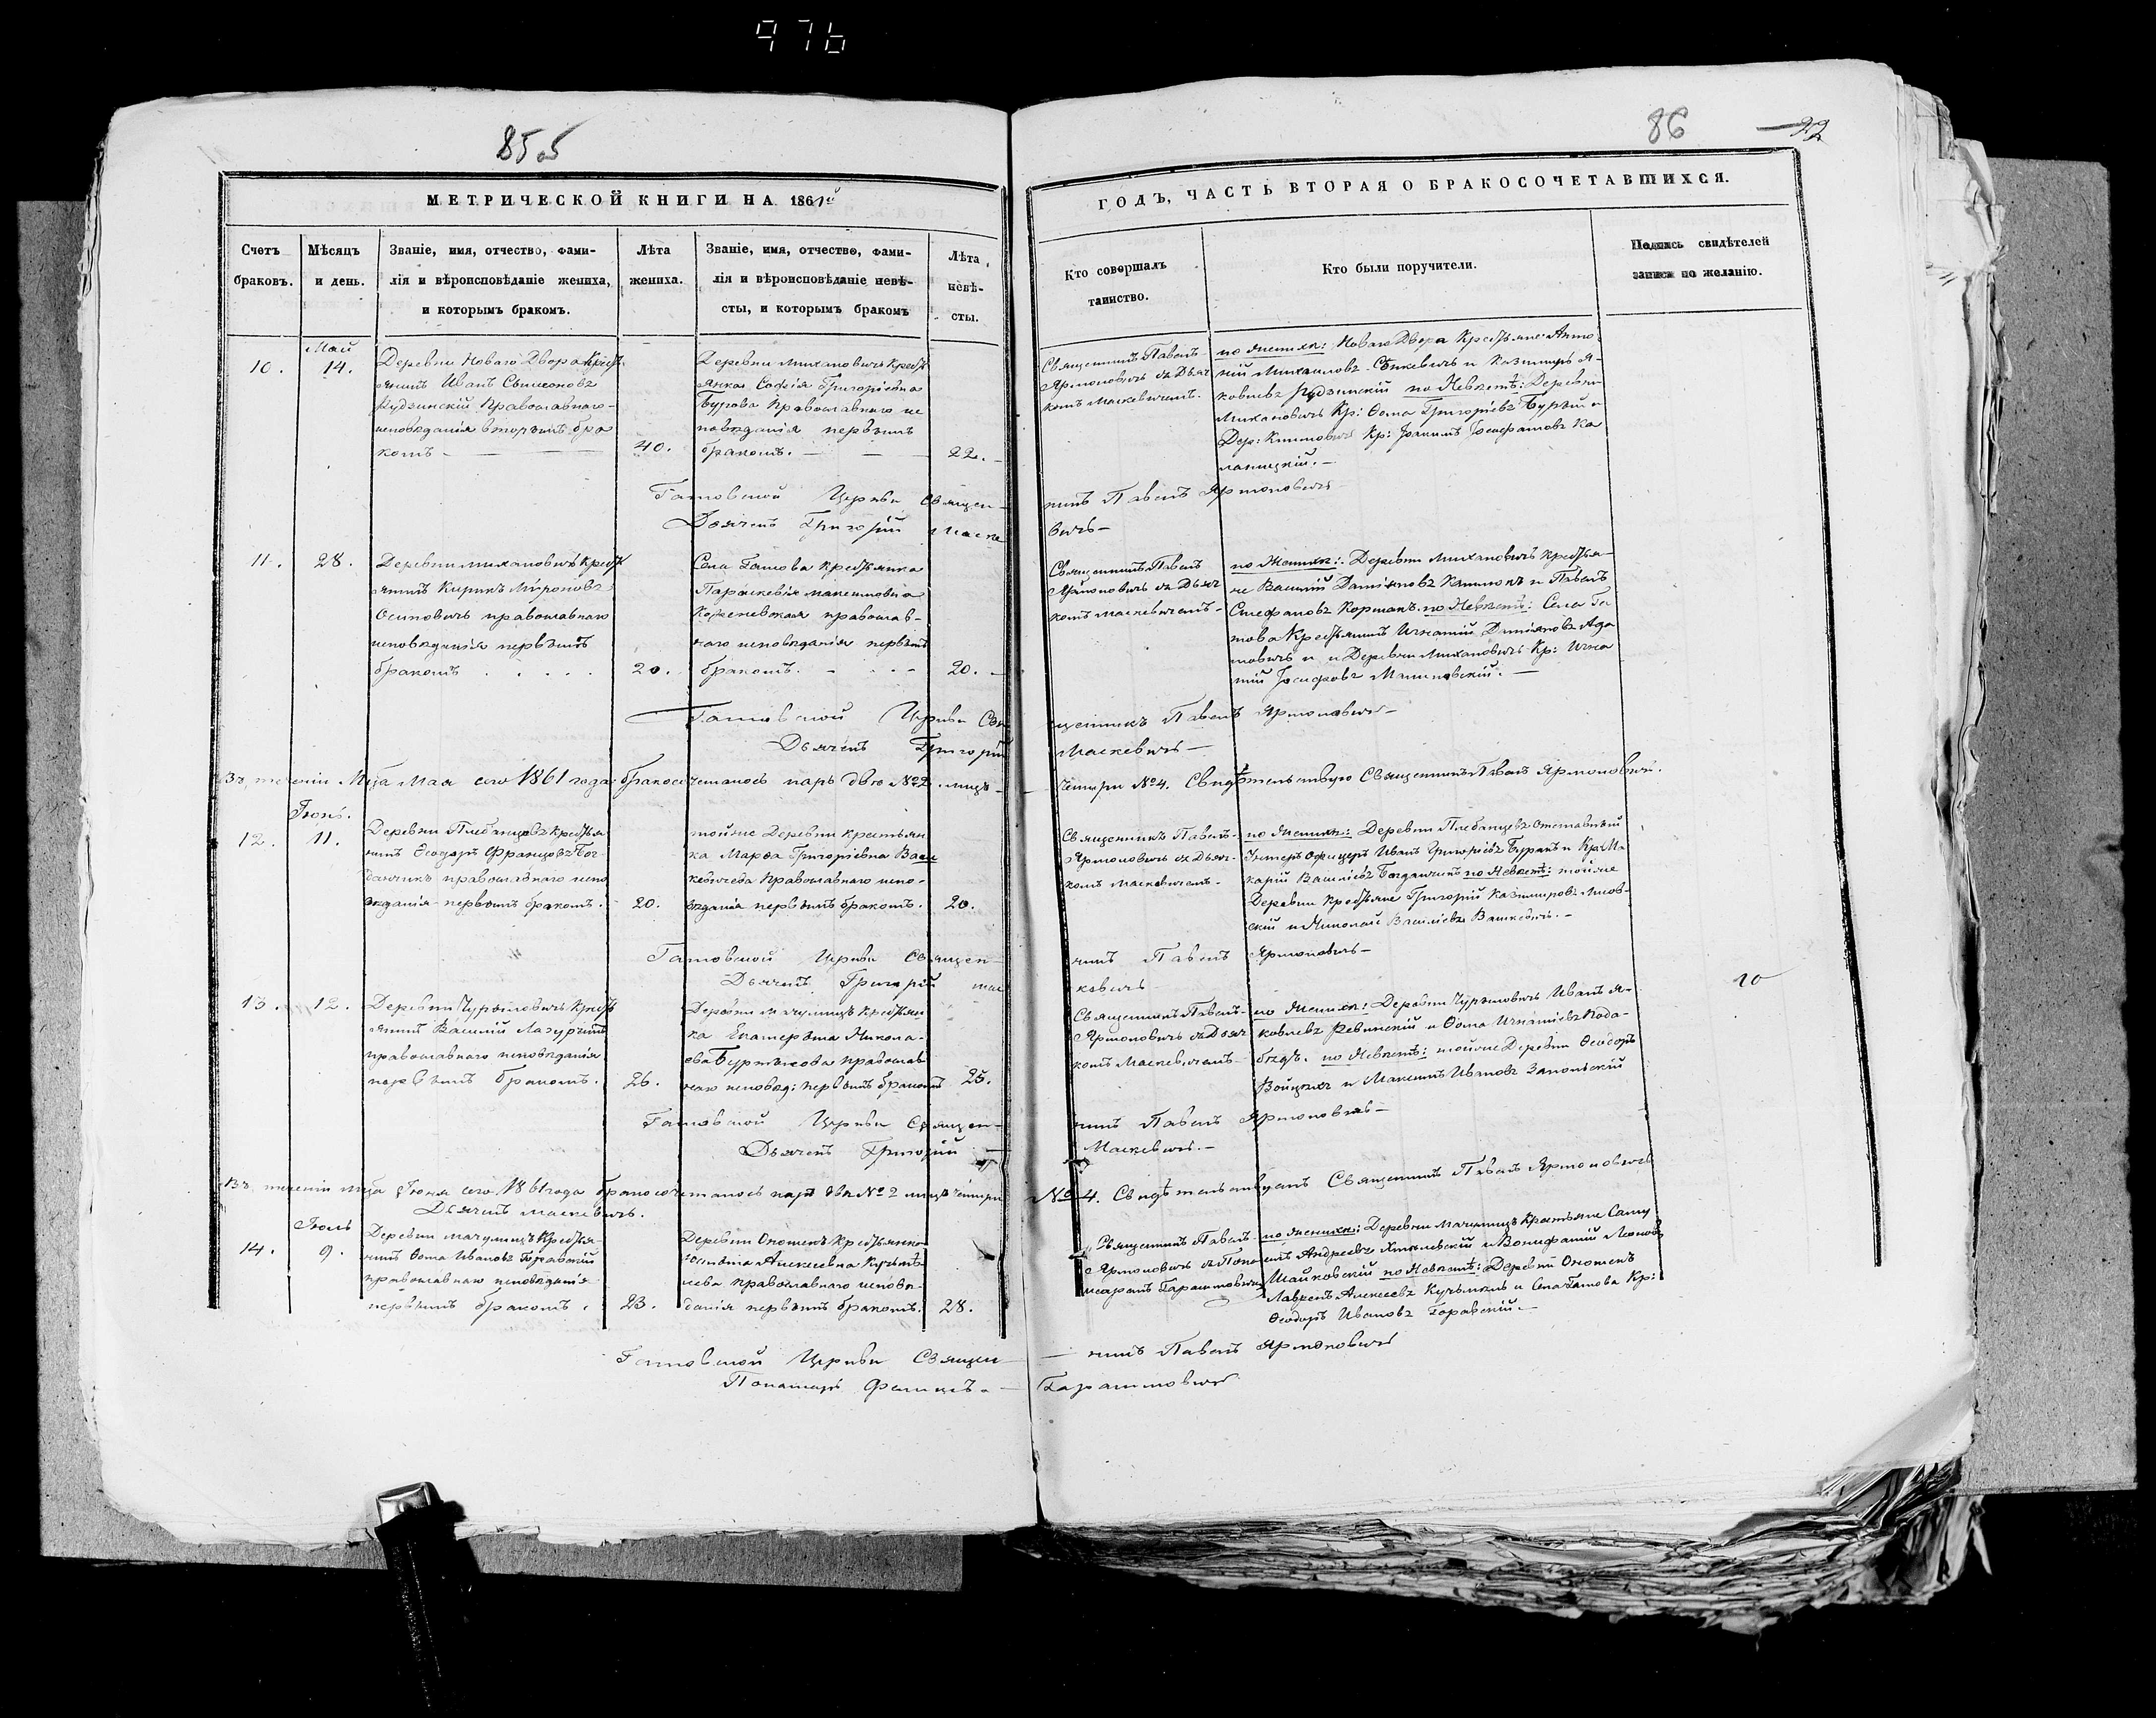 976
85 об
86
22
МЕТРИЧЕСКОЙ КНИГИ НА 1861й
ГОДЪ, ЧАСТЬ ВТОРАЯ О БРАКОСОЧЕТАВШИХСЯ.
Счетъ браковъ.
Мѣсяцъ и день.
Званіе, имя, отчество, фами-
лія и вѣроисповѣданіе жениха,
и которымъ бракомъ.
Лѣта жениха.
Званіе, имя, отчество, фами-
лія и вѣроисповѣданіе невѣ-
сты, и которымъ бракомъ
Лѣта невѣ-
сты.
Кто совершалъ
таинство.
Кто были поручители.
Подпись свидѣтелей
записи по желанію.
Май
10. 14.
Деревни Новаго Двора Крестъ
янинъ Иванъ Сымоновъ
Рудзинскій Православнаго
исповѣданія вторымъ бра
комъ
40.
Деревни Михановичъ Крестъ
янка Софія Григоріевна
Бурова Православнаго ис
повѣданія первымъ
бракомъ.
22.
Священникъ Павелъ
Ярмоловичъ съ Дьяч
комъ Маскевичемъ.
по женихѣ: Новаго Двора Крестьяне Анто-
ній Михаиловъ Сѣнкевичъ и Казимиръ Я-
ковлевъ Рудзинскій по Невѣстѣ: Деревни
Михановичъ Кр: Ѳома Григоріевъ Бурый и
Дер: Кр: Іосафатовъ Ка
Гатовской Церкви Священ-
никъ Павелъ Ярмоловичъ
Дьячекъ Григорій Маске
вичъ
11. 28.
Деревни Михановичъ Крестъ
янинъ Кирикъ Мѵроновъ
Осиповичъ православнаго
исповѣданія первымъ
бракомъ
20.
Села Гатова Крестьянка
Параскевія Максимовна
православ-
наго исповѣданія первымъ
бракомъ.
20.
Священникъ Павелъ
Ярмоловичъ съ Дьяч
комъ Маскевичемъ
по Женихѣ: Деревни Михановичъ Крестья-
не Василій Даміяновъ и Павелъ
Стефановъ Корманъ. по Невѣстѣ: Села Га
това Крестьянинъ Игнатій Даміяновъ Ада
мовичъ и Деревни Михановичъ Кр: Игна
тій Іосифовъ Малиновскій.
Гатовской Церкви Свя
щенникъ Павелъ Ярмоловичъ
Дьячекъ Григорій
Маскевичъ
Въ теченіи М-ца Мая сего 1861 года бракосочеталось паръ двѣ №2. лицъ
четыри №4. Свидѣтельствую Священникъ Павелъ Ярмоловичъ.
Іюнь.
12. 11.
Деревни Плебанцовъ Крестья
нинъ Ѳеодоръ Францовъ Бог
данчикъ православнаго испо
вѣданія первымъ бракомъ.
20.
тойже Деревни крестьян
ка Марѳа Григоріевна Ваш
кевичева Православнаго испо-
вѣданія первымъ бракомъ.
20.
Священникъ Павелъ
Ярмоловичъ съ Дьяч-
комъ Маскевичемъ.
по женихѣ: Деревни Плебанцевъ отставный
Унтеръ офицеръ Иванъ Григоріевъ Буракъ и Кр: Ма
карій Василіевъ Богданчикъ по Невѣстѣ: тойже
Деревни Крестьяне Григорій Казимировъ Лисов-
скій и Николай Василіевъ Вашкевичъ.
Гатовской Церкви Священ-
никъ Павелъ Ярмоловичъ
Дьячекъ Григорій Мас
кевичъ
13. 12.
Деревни Чуриловичъ Крестъ
янинъ Василій
православнаго исповѣданія
первымъ бракомъ.
26.
Деревни Мачулищъ крестьян
ка Екатерина Никола-
ева православ
наго исповѣд: первымъ бракомъ
25.
Священникъ Павелъ
Ярмоловичъ съ Дьяч
комъ Маскевичемъ
по Женихѣ: Деревни Чуриловичъ Иванъ Я-
ковлевъ Ревинскій и Ѳома Игнатіевъ
по Невѣстѣ: тойже Деревни Ѳеодоръ
Войцехъ и Максимъ Ивановъ Запольскій
10
Гатовской Церкви Священ-
никъ Павелъ Ярмоловичъ
Дьячекъ Григорій
Маскевичъ.
Въ теченіи м-ца Іюня сего 1861 года бракосочеталось паръ двѣ №2 лицъ четыри
№4. Свидѣтельствуемъ Священникъ Павелъ Ярмоловичъ
Дьячекъ Маскевичъ.
Іюль
14. 9.
Деревни Мачулищъ Крестья-
нинъ Ѳома Ивановъ Горавскій
православнаго исповѣданія
первымъ бракомъ.
23.
Деревни Крестьянка
Алексеевна
православнаго исповѣ-
данія первымъ бракомъ.
28.
Священникъ Павелъ
Ярмоловичъ съ Поно
маремъ
по женихѣ: Деревни Мачулищъ Крестьяне Саму
илъ Андреевъ и Вонифатій Леоновъ
Шайковскій по Невѣстѣ: Деревни
Алексеевъ и Села Гатова Кр:
Ѳеодоръ Ивановъ Горавскій.
Гатовской Церкви Священ
никъ Павелъ Ярмоловичъ
Пономарь